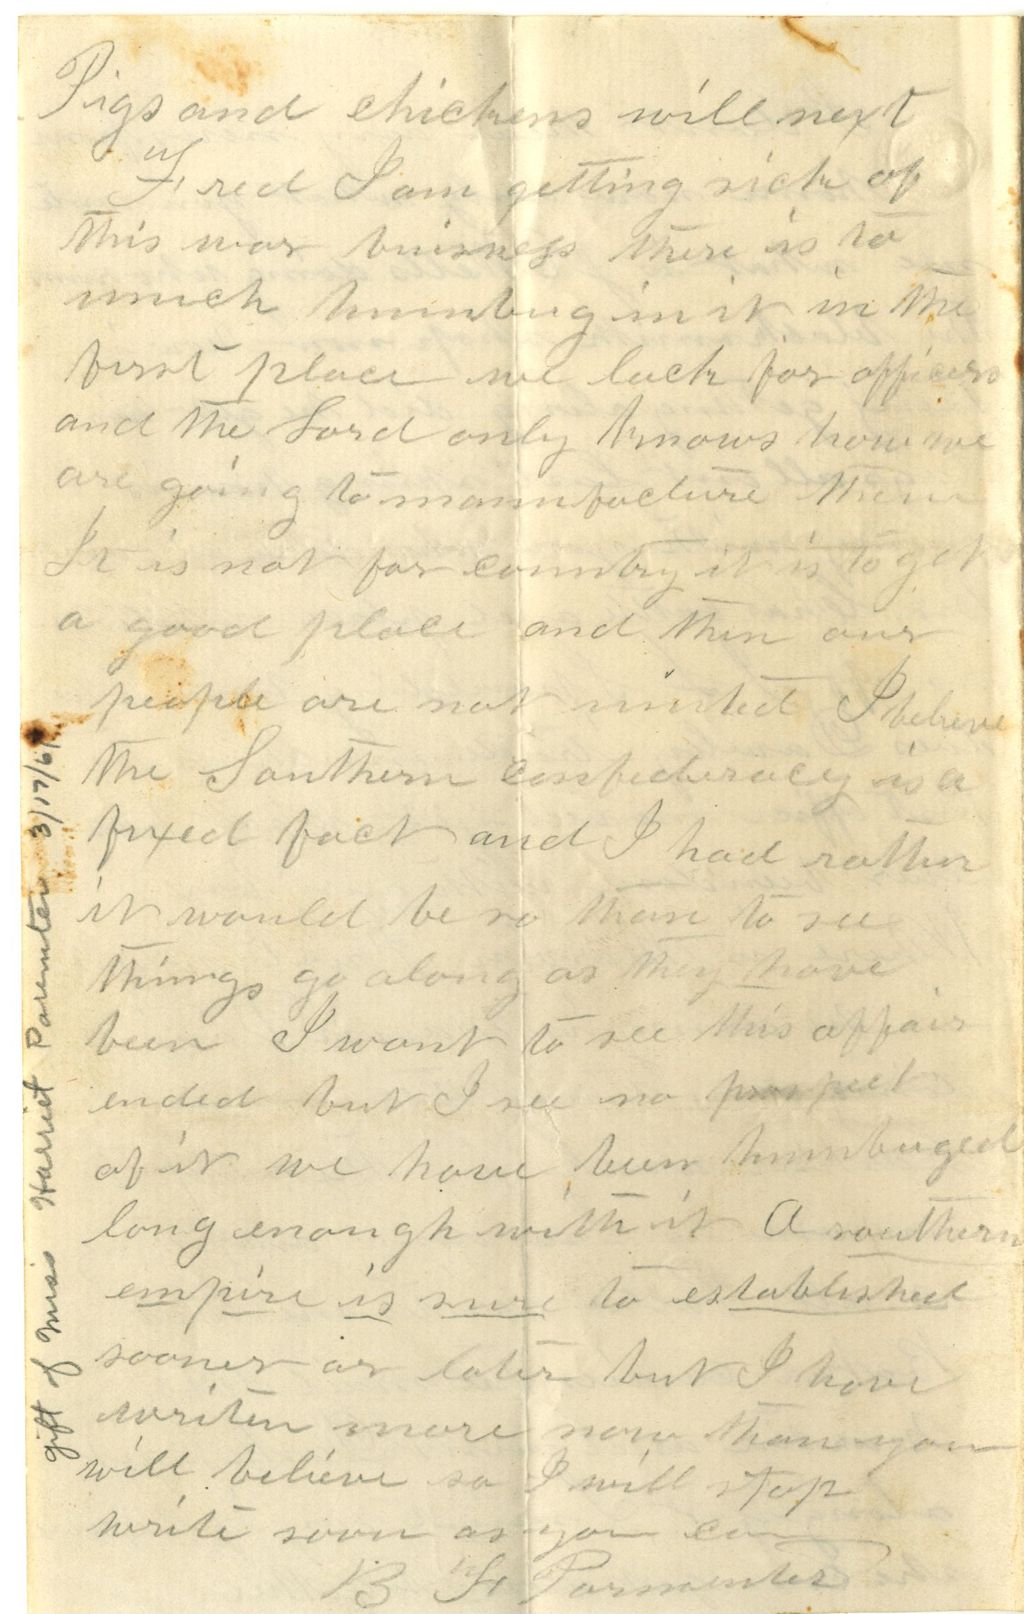 Pigs and chickens will next
Fred I am getting sick of
this war buisness there is to
much humbug in it in the
first place we lack for officers
and the Lord only knows how we
are going to manufacture them
It is not for country it is to get
a good place and then our
people are not united I believe
the Southern confederacy is a
fixed fact and I had rather
it would be so than to see
things go along as they have
been I want to see this affair
ended but I see no prospect
of it we have been humbuged
long enough with it A southern
empire is sure to established
sooner or later but I have
writen more now than you
will believe so I will stop
write soon as you can
B F Parmenter
gift of Miss Harriet Parmenter 3/17/61